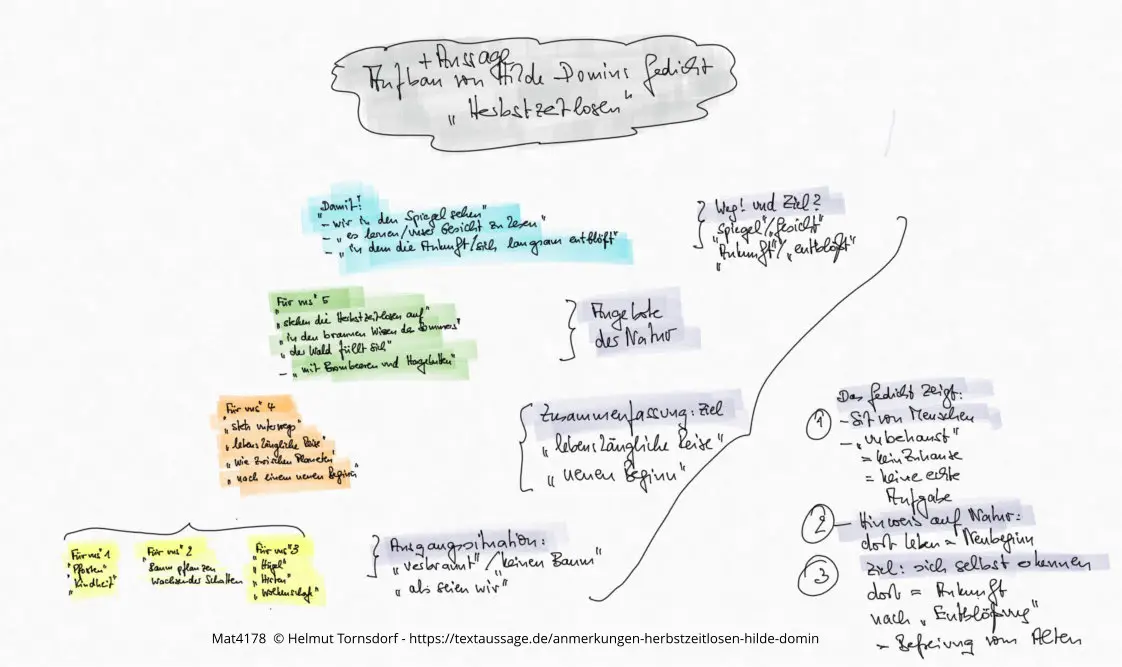 + Aussage
Aufbau von Hilde Domins Gedicht
„Herbstzeitlosen"
Damit!
- wir in den Spiegel sehen"
- „es lernen/unser Gesicht zu lesen"
- „in dem die Ankunft/sich langsam entblößt"
Weg! und Ziel?
„Spiegel"/„Gesicht"
„Ankunft"/„entblößt"
„Für uns" 5
„stehen die Herbstzeitlosen auf"
„in den braunen Wiesen des Sommers"
„der Wald füllt sich"
- „mit Brombeeren und Hagebutten"
Angebote
der Natur
„Für uns" 4
„stets unterwegs"
„lebenslängliche Reise"
„wie zwischen Planeten"
„nach einem neuen Beginn"
Zusammenfassung: Ziel
„lebenslängliche Reise"
„neuen Beginn"
„Für uns" 1
„Pfosten"
„Kindheit"
„Für uns" 2
Baum pflanzen
wachsender Schatten
„Für uns" 3
„Hügel"
„Hirten"
„Wolkenschaf"
Ausgangssituation:
„verbrannt"/„keinen Baum"
„als seien wir"
Das Gedicht zeigt:
1 - Sit von Menschen
- „unbehaust"
= kein Zuhause
= keine echte
Aufgabe
2 - Hinweis auf Natur:
dort Leben = Neubeginn
3 Ziel: sich selbst erkennen
dort = Ankunft
nach „Entblößung"
= Befreiung vom Alten
Mat4178 © Helmut Tornsdorf - https://textaussage.de/anmerkungen-herbstzeitlosen-hilde-domin